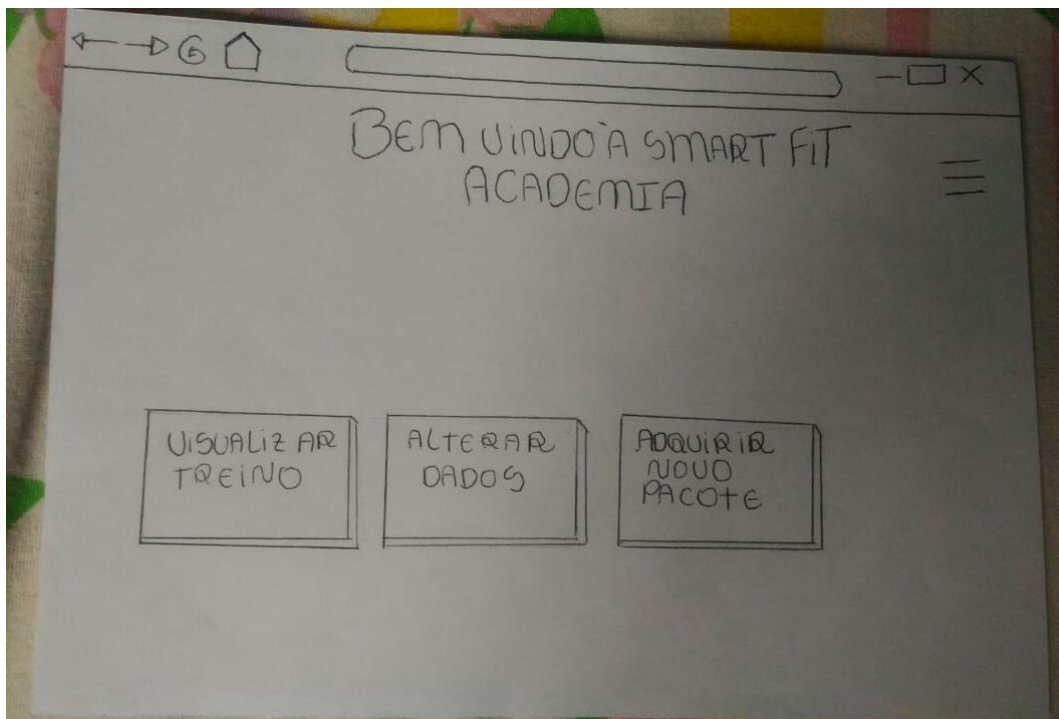 BEM VINDO À SMART FIT
ACADEMIA
VISUALIZAR
TREINO
ALTERAR
DADOS
ADQUIRIR
NOVO
PACOTE